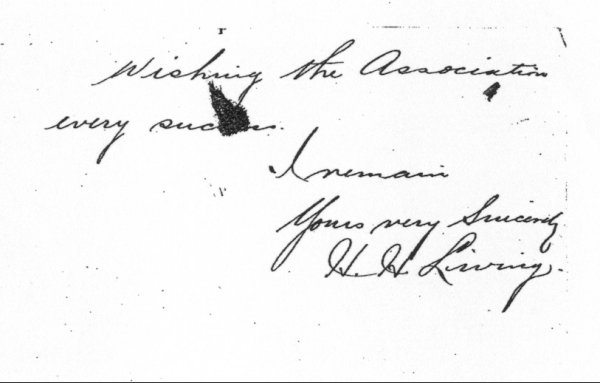 Wishing the Association
every success.
I remain
Yours very Sincerely
H. H. Living.